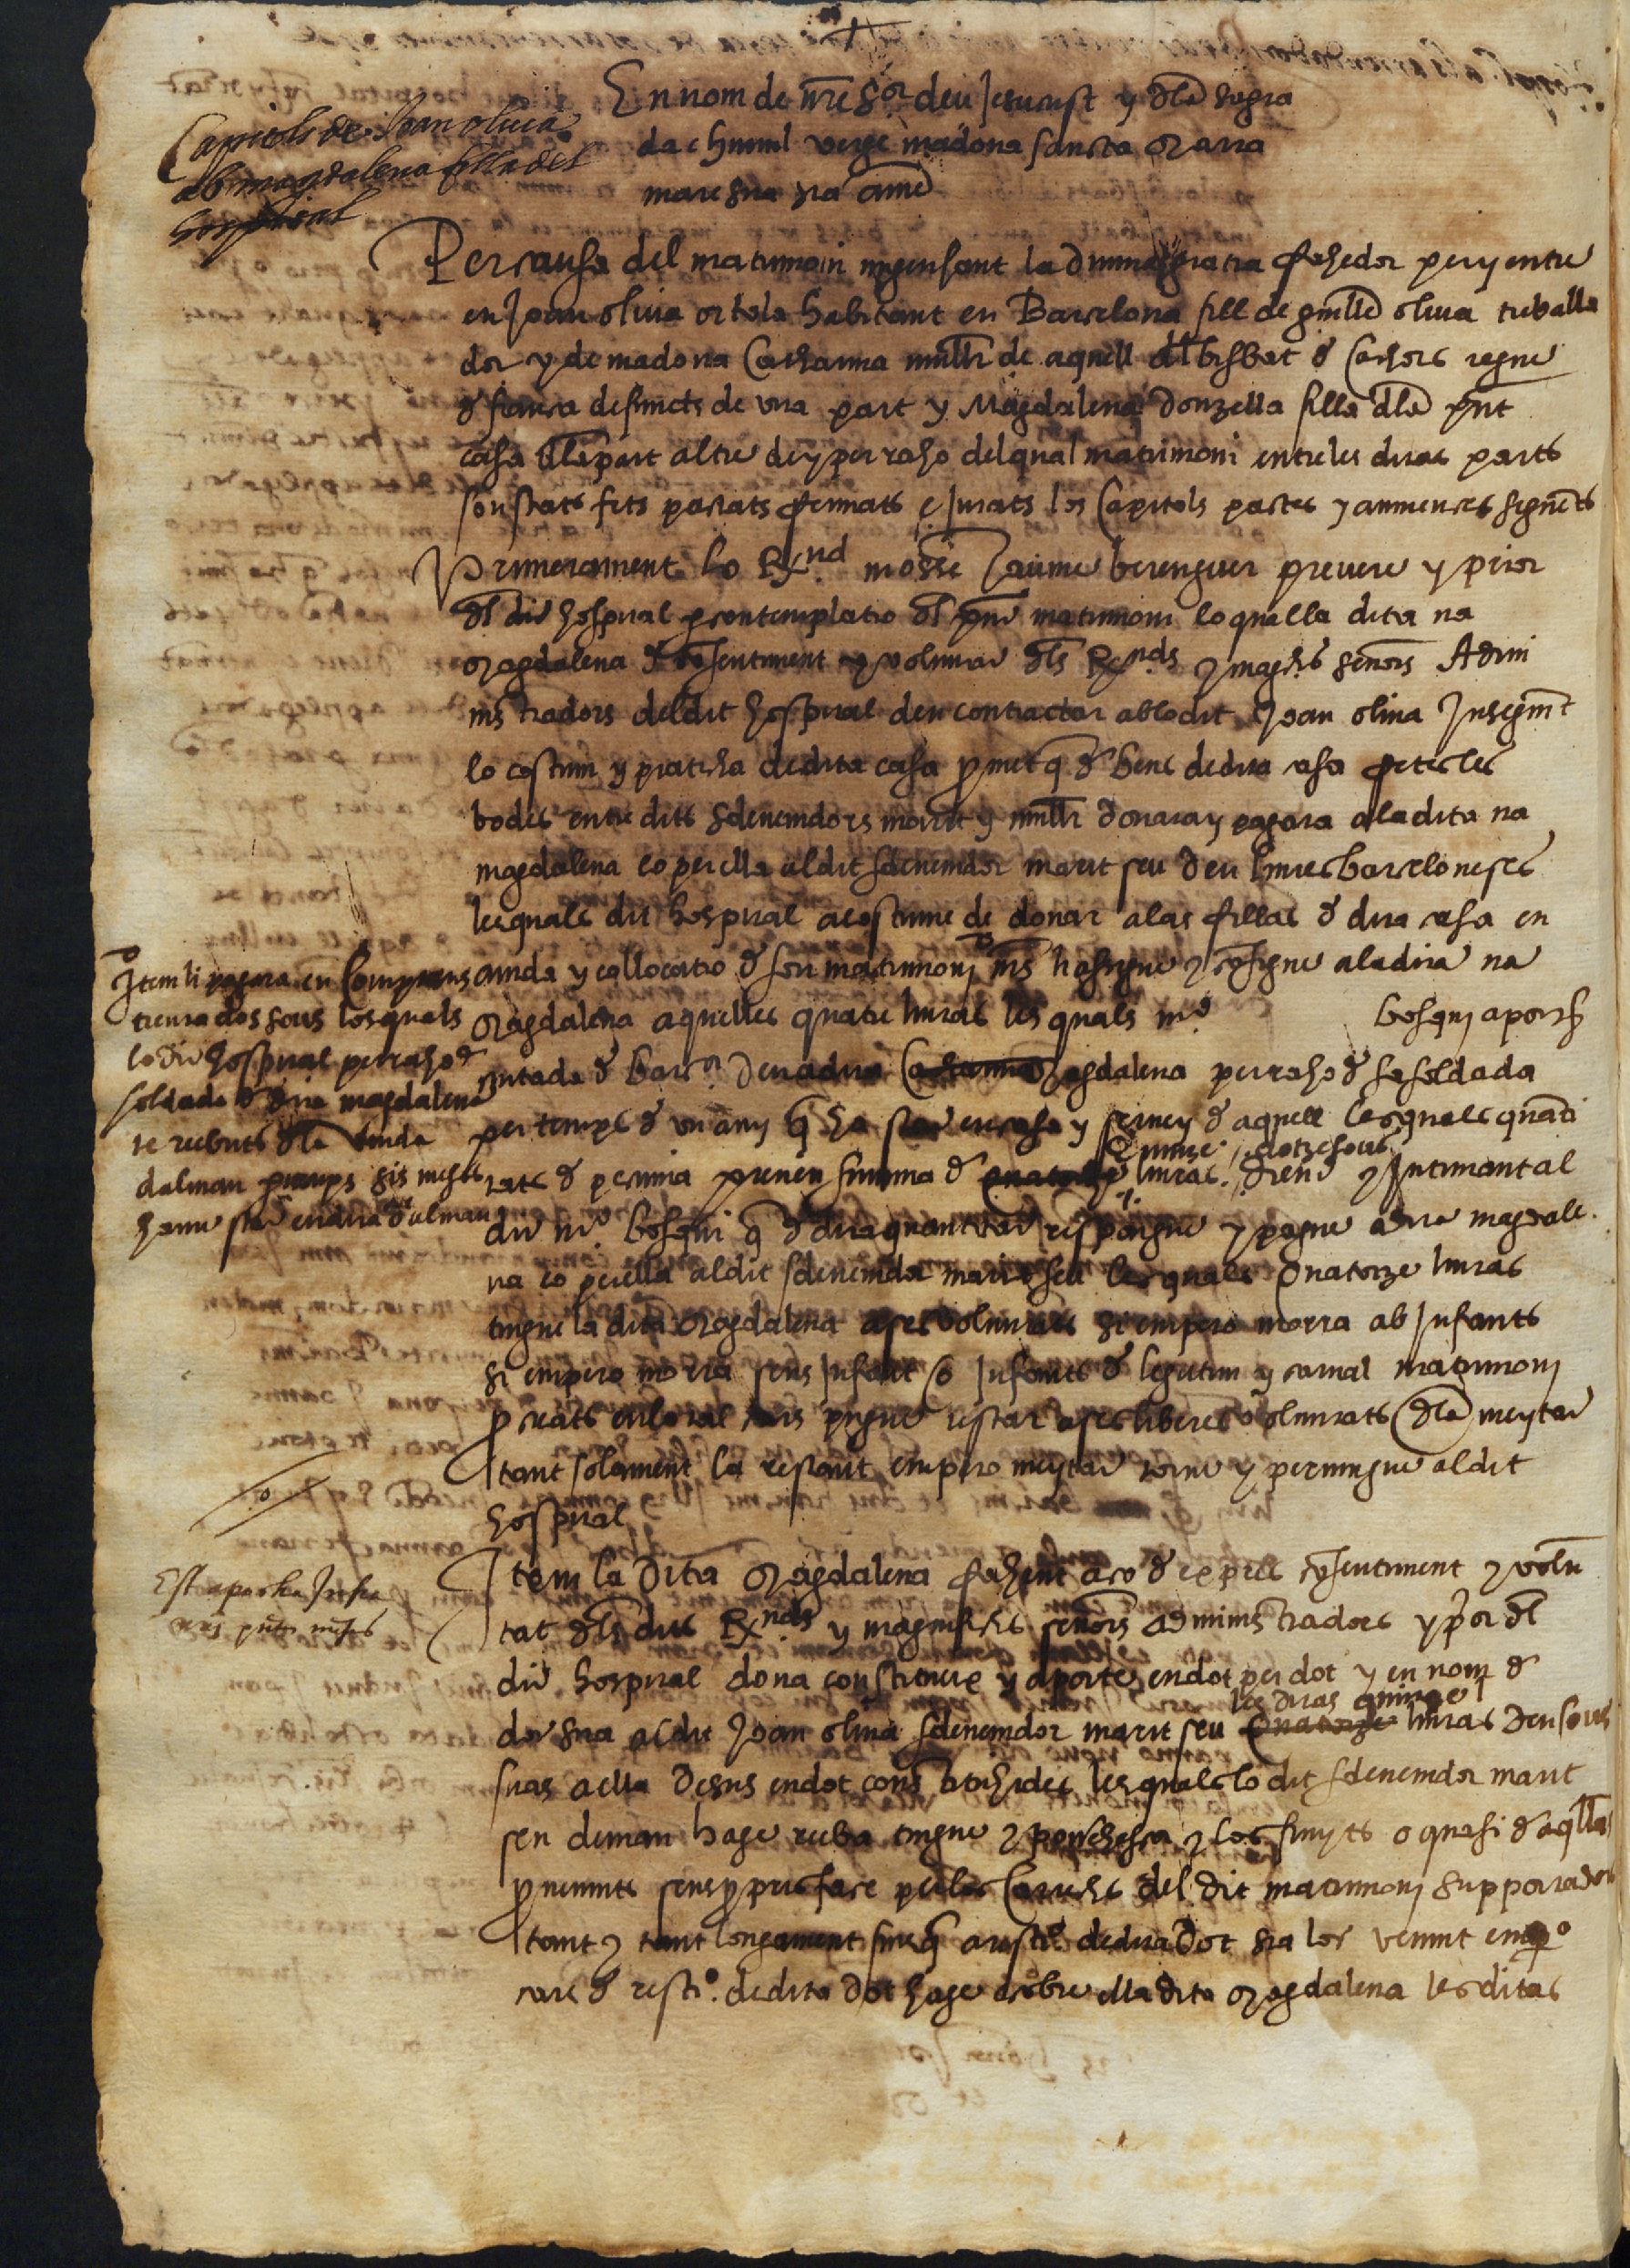 En nom de nre Sor deu Jesucrist y dla sagra
da e humil verge madona sancta Maria
mare sua sia ame
Capitols de Joan oliua
ab magdalena filla del
hospital
Per causa del matrimoni mijensant la diuina gratia fahedor per y entre
en Joan oliua ortola habitant en Barcelona fill de guille oliua treballa
dor y de madona Catharina mullr de aquell dl bisbat d Cahors regne
d fransa defuncts de vna part y Magdalena donzella filla dla pnt
casa dla part altre de y per raho del qual matrimoni entre les ditas parts
son stats fets pactats fermats e jurats los Capitols pactes y auinenses seguets
Primerament lo Rnd mosse Jaume berenguer preuere y prior
dl dit hospital p contemplatio dl pnt matrimoni lo qual la dita na
Magdalena d cosentiment y voluntat dls Rnds y magchs senors Admi
nistradors del dit hospital deu contractar ab lo dit Joan oliua Inseguint
lo costum y praticha de dita casa pmet q d bens de dita casa fetes les
bodes entre dits sdeuenidors marit y mullr donara y pagara a la dita na
magdalena o per ella al dit sdeuenidor marit seu deu liures barceloneses
les quals dit hospital acostume de donar a las fillas d dita casa en
aiuda y collocatio d son matrimoni mes li assigne y cosigne a la dita na
Magdalena aquelles quatre liuras les quals mo bosqui aporch
ciutada d barna deu a dita Catharina Magdalena per raho d sa soldada
per temps d vn any q ha stat en casa y seruey d aquell les quals quati
tats d pecunia prenen summa d quatorze quinze liuras dotze sous dient y Intimant al
dit mo bosqui q d dita quantitat respongue y pague a dita magdale
na o per ella al dit sdeuenidor marit seu les quals quatorze liuras
tingue la dita Magdalena a ses voluntats si empero morra ab Infants
si empero morra sens Infant o Infants d legitim y carnal matrimoni
p creats en lo tal cars pugue testar a ses liberes voluntats dla meytat
tant solament la restant empero meytat torne y peruingue al dit
hospital
Item li pagara en Comptans
trenta dos sous los quals
lo dit hospital per raho d
soldada d dita magdalena
te rebuts dla viuda
dalmau p temps sis mesos
ha stat en dita dalmau
Item la dita Magdalena fahent aço d expres cosentiment y volu
tat dls dits Rnds y magnifichs senors administradors y pior dl
dit hospital dona constitueix y aporte en dot per dot y en nom d
dot sua al dit Joan oliua sdeuenidor marit seu quatorze les ditas quinze liuras deu sous
suas a ella desus en dot constituhides les quals lo dit sdeuenidor marit
seu deman hage reba tingue y possehesca y los fruyts o quasi d aqlla
prouenints sens pres fasse per los Carrechs del dit matrimoni supportador
tant y tant longament fins q a restio de dita dot sia loc venint empo
cars d restio de dita dot hage a cobre ella dita Magdalena les ditas